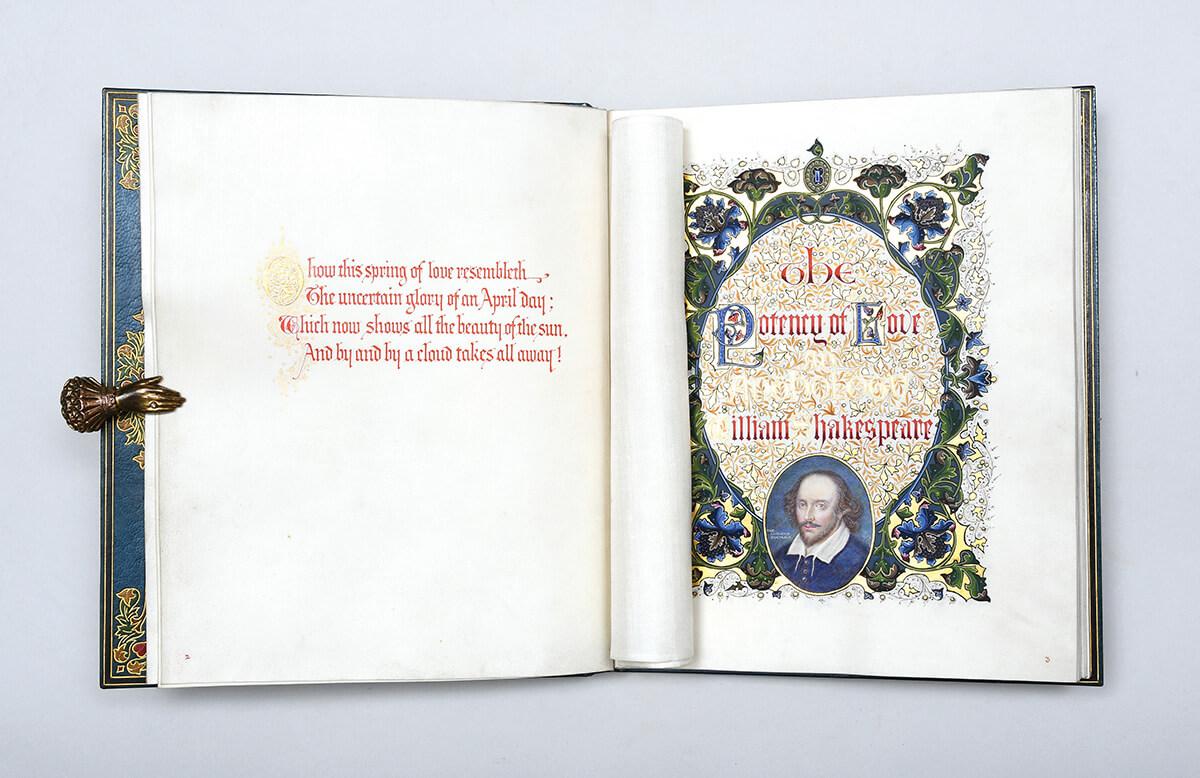 O how this spring of love resembleth
The uncertain glory of an April day;
Which now shows all the beauty of the sun,
And by and by a cloud takes all away!
The
Potency of Love
William Shakespeare